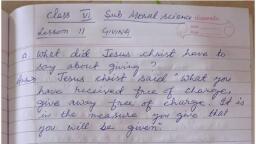 Class VI Sub Moral science
Lesson 11 Giving
Q. What did Jesus christ have to
say about giving?
Ans. Jesus christ said "What you
have received free of charge,
give away free of charge. It is
in the measure you give that
you will be given"